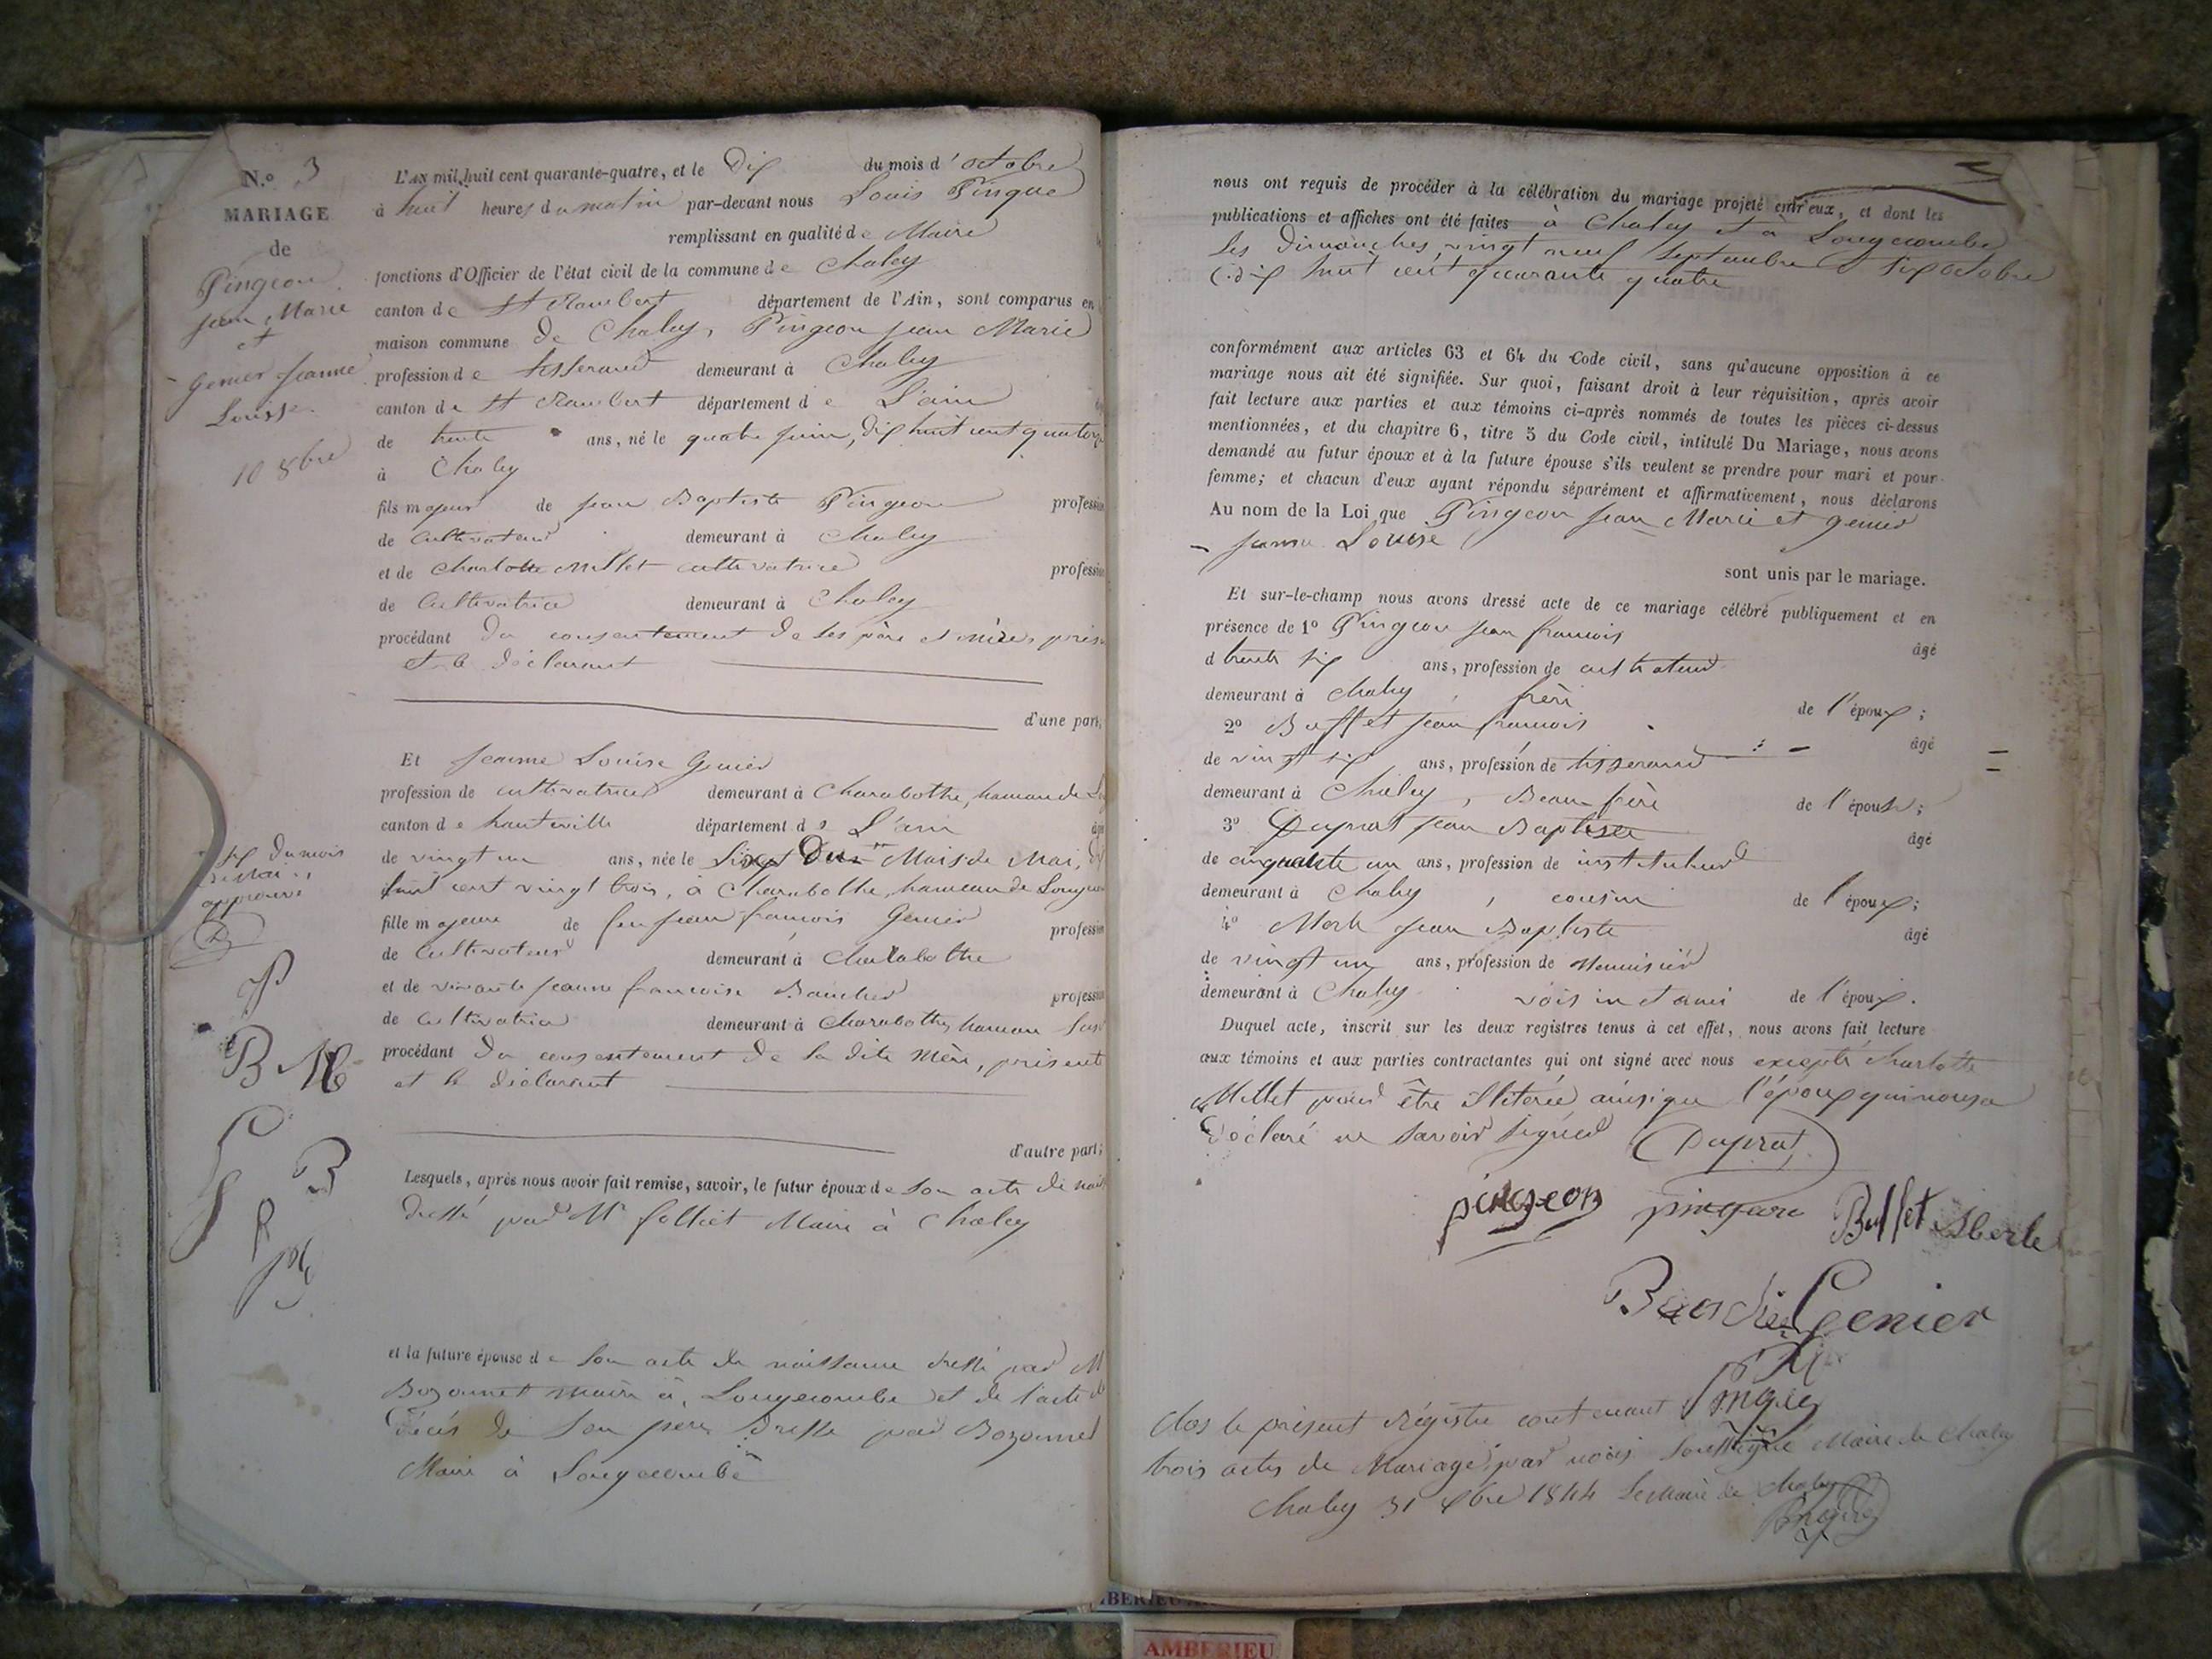 N.º 3
MARIAGE
de
Pingeon
Jean Marie
et
Genier Jeanne
Louise
10 8bre
L'AN mil huit cent quarante-quatre, et le Dix du mois d'octobre
à huit heures du matin par-devant nous Louis Pingue
remplissant en qualité de Maire
fonctions d'Officier de l'état civil de la commune de Chaley
canton de St Rambert département de l'Ain, sont comparus en
maison commune de Chaley, Pingeon Jean Marie
profession de tisserand demeurant à Chaley
canton de St Rambert département de L'ain
de trente ans, né le quatre juin, dix huit cent quatorze
à Chaley
fils majeur de jean Baptiste Pingeon profession
de Cultivateur demeurant à Chaley
et de Charlotte Millet cultivatrice profession
de Cultivatrice demeurant à Chaley
procédant du consentement de ses père et mère, prés
et le déclarant
d'une part,
Et Jeanne Louise Genier
profession de cultivatrice demeurant à Charabothe, hameau de
canton de hauteville département de L'ain
de vingt un ans, née le Six Du Mois de Mai, dix
huit cent vingt trois, à Charabothe, hameau de
fille majeure de feu jean françois Genier profession
de Cultivateur demeurant à Charabothe
et de vivante jeanne françoise Baucher profession
de Cultivatrice demeurant à Charabothe, hameau
procédant du consentement de sa dite Mère, présent
et le déclarant
d'autre part;
six du mois
approuvé
P
B M
B
P
Lesquels, après nous avoir fait remise, savoir, le futur époux de son acte de
dressé par Mr folliet Maire à Chaley
et la future épouse de son acte de naissance dressé par M
Bozonnet Maire à Longecombe et de l'acte de
décès de son père dressé par Bozonnet
Maire à Longecombe
nous ont requis de procéder à la célébration du mariage projeté entr'eux, et dont les
publications et affiches ont été faites à Chaley et à Longecombe
les Dimanches, vingt neuf Septembre et six octobre
dix huit cent quarante quatre
conformément aux articles 63 et 64 du Code civil, sans qu'aucune opposition à ce
mariage nous ait été signifiée. Sur quoi, faisant droit à leur réquisition, après avoir
fait lecture aux parties et aux témoins ci-après nommés de toutes les pièces ci-dessus
mentionnées, et du chapitre 6, titre 5 du Code civil, intitulé Du Mariage, nous avons
demandé au futur époux et à la future épouse s'ils veulent se prendre pour mari et pour
femme; et chacun d'eux ayant répondu séparément et affirmativement, nous déclarons
Au nom de la Loi que Pingeon jean Marie et Genier
jeanne Louise
sont unis par le mariage.
Et sur-le-champ nous avons dressé acte de ce mariage célébré publiquement et en
présence de 1º Pingeon jean françois âgé
d trente six ans, profession de cultivateur
demeurant à Chaley, frère de l'époux;
2º Buffet jean françois âgé
de vingt six ans, profession de tisserand
demeurant à Chaley, Beau-frère de l'épouse;
3º Duprat jean Baptiste âgé
de cinquante un ans, profession de instituteur
demeurant à Chaley, cousin de l'époux;
4º Merle Jean Baptiste âgé
de vingt un ans, profession de Menuisier
demeurant à Chaley voisin et ami de l'époux.
Duquel acte, inscrit sur les deux registres tenus à cet effet, nous avons fait lecture
aux témoins et aux parties contractantes qui ont signé avec nous excepté Charlotte
Millet pour être illitérée ainsi que l'époux qui nous a
Déclaré ne savoir signer Duprat
pingeon pingeon Buffet Merle
Baucher Genier
Pingue
Clos le présent Régistre contenant
trois actes de Mariage, par nous soussigné Maire de Chaley
Chaley 31 Xbre 1844 Le Maire de Chaley
Pingue
AMBERIEU